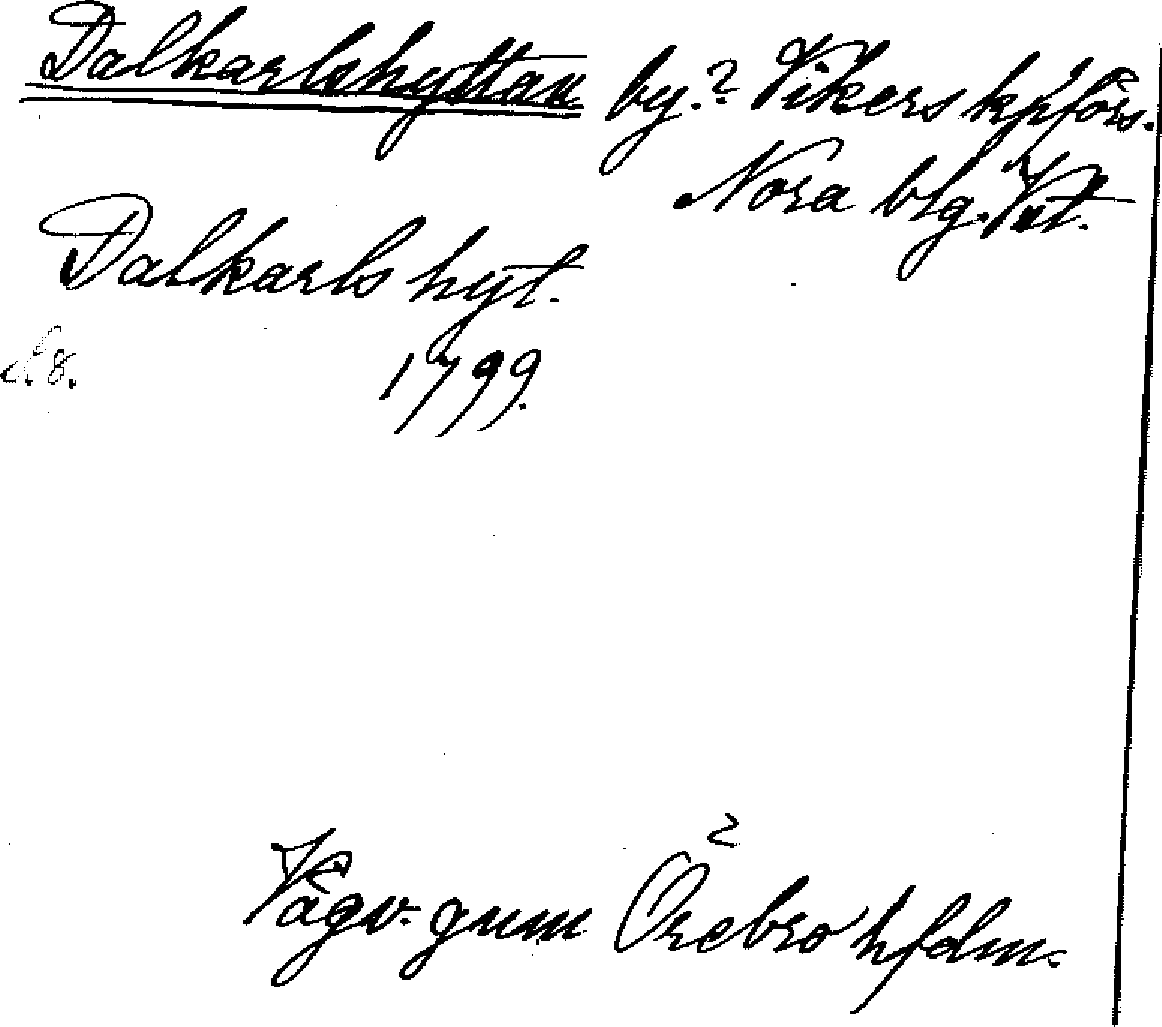 Dalkarlshyttan by.? Vikers kpförs.
Nora blg. Vstl.
Dalkarls hyt.
1799.
Vägv. gnm Örebro hfdm.